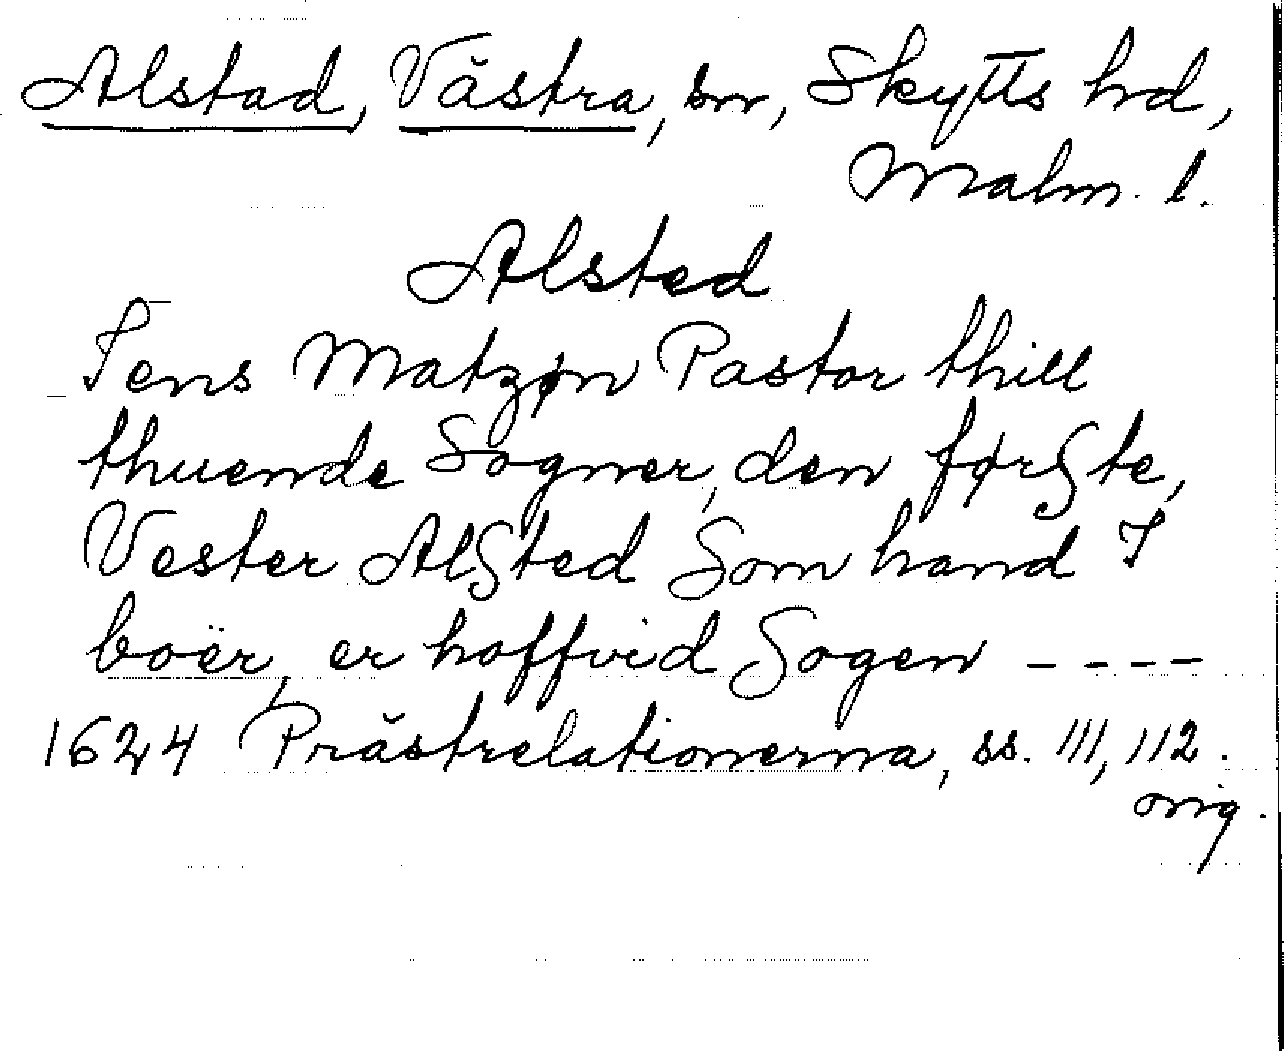 Alstad, Västra, sn, Skytts hd,
Malm. l.
Alsted
Jens Matzøn Pastor thill
thuende Sogner, den førSte,
Vester AlSted Som hand I
boër, er hoffvid Sogen - - - -
1624 Prästrelationerna, ss. 111, 112.
orig.